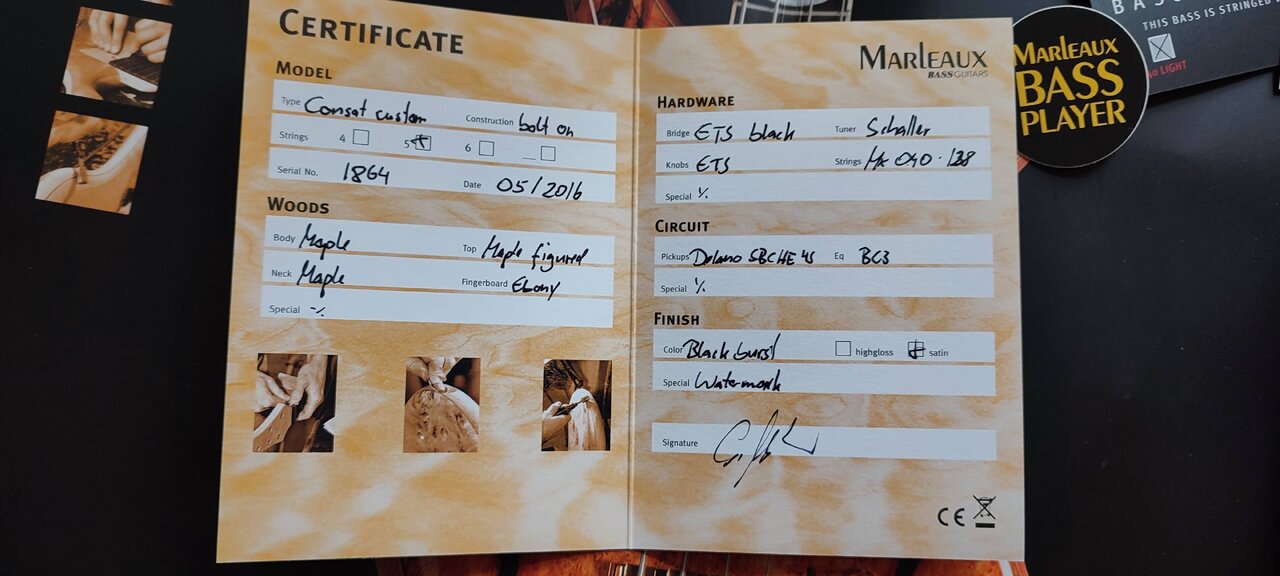 CERTIFICATE
MODEL
Type Consat custom Construction bolt on
Strings 4 5 6 __
Serial No. 1864 Date 05/2016
WOODS
Body Maple Top Maple figured
Neck Maple Fingerboard Ebony
Special -%
MARLEAUX
BASSGUITARS
HARDWARE
Bridge ETS black Tuner Schaller
Knobs ETS Strings Mx 040-128
Special %
CIRCUIT
Pickups Delano SBCHE 4S Eq BC3
Special %
FINISH
Color Black burst highgloss satin
Special Watermark
Signature
CE
MARLEAUX
BASS
PLAYER
THIS BASS IS STRINGED
LIGHT